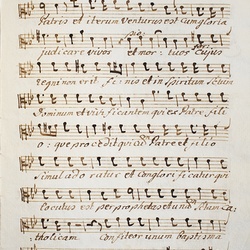 Patris et iterum venturus est cum gloria
judicare vivos et mortuos Cujus
regni non erit finis et in Spiritum Sctum
Dominum et vivificantem qui ex Patre fili
o: que procedit qui cum Patre et filio
simul adoratur et conglorificatur qui
locutus est per prophetas et unam Sctam ca:
tholicam Confiteor unum baptisma